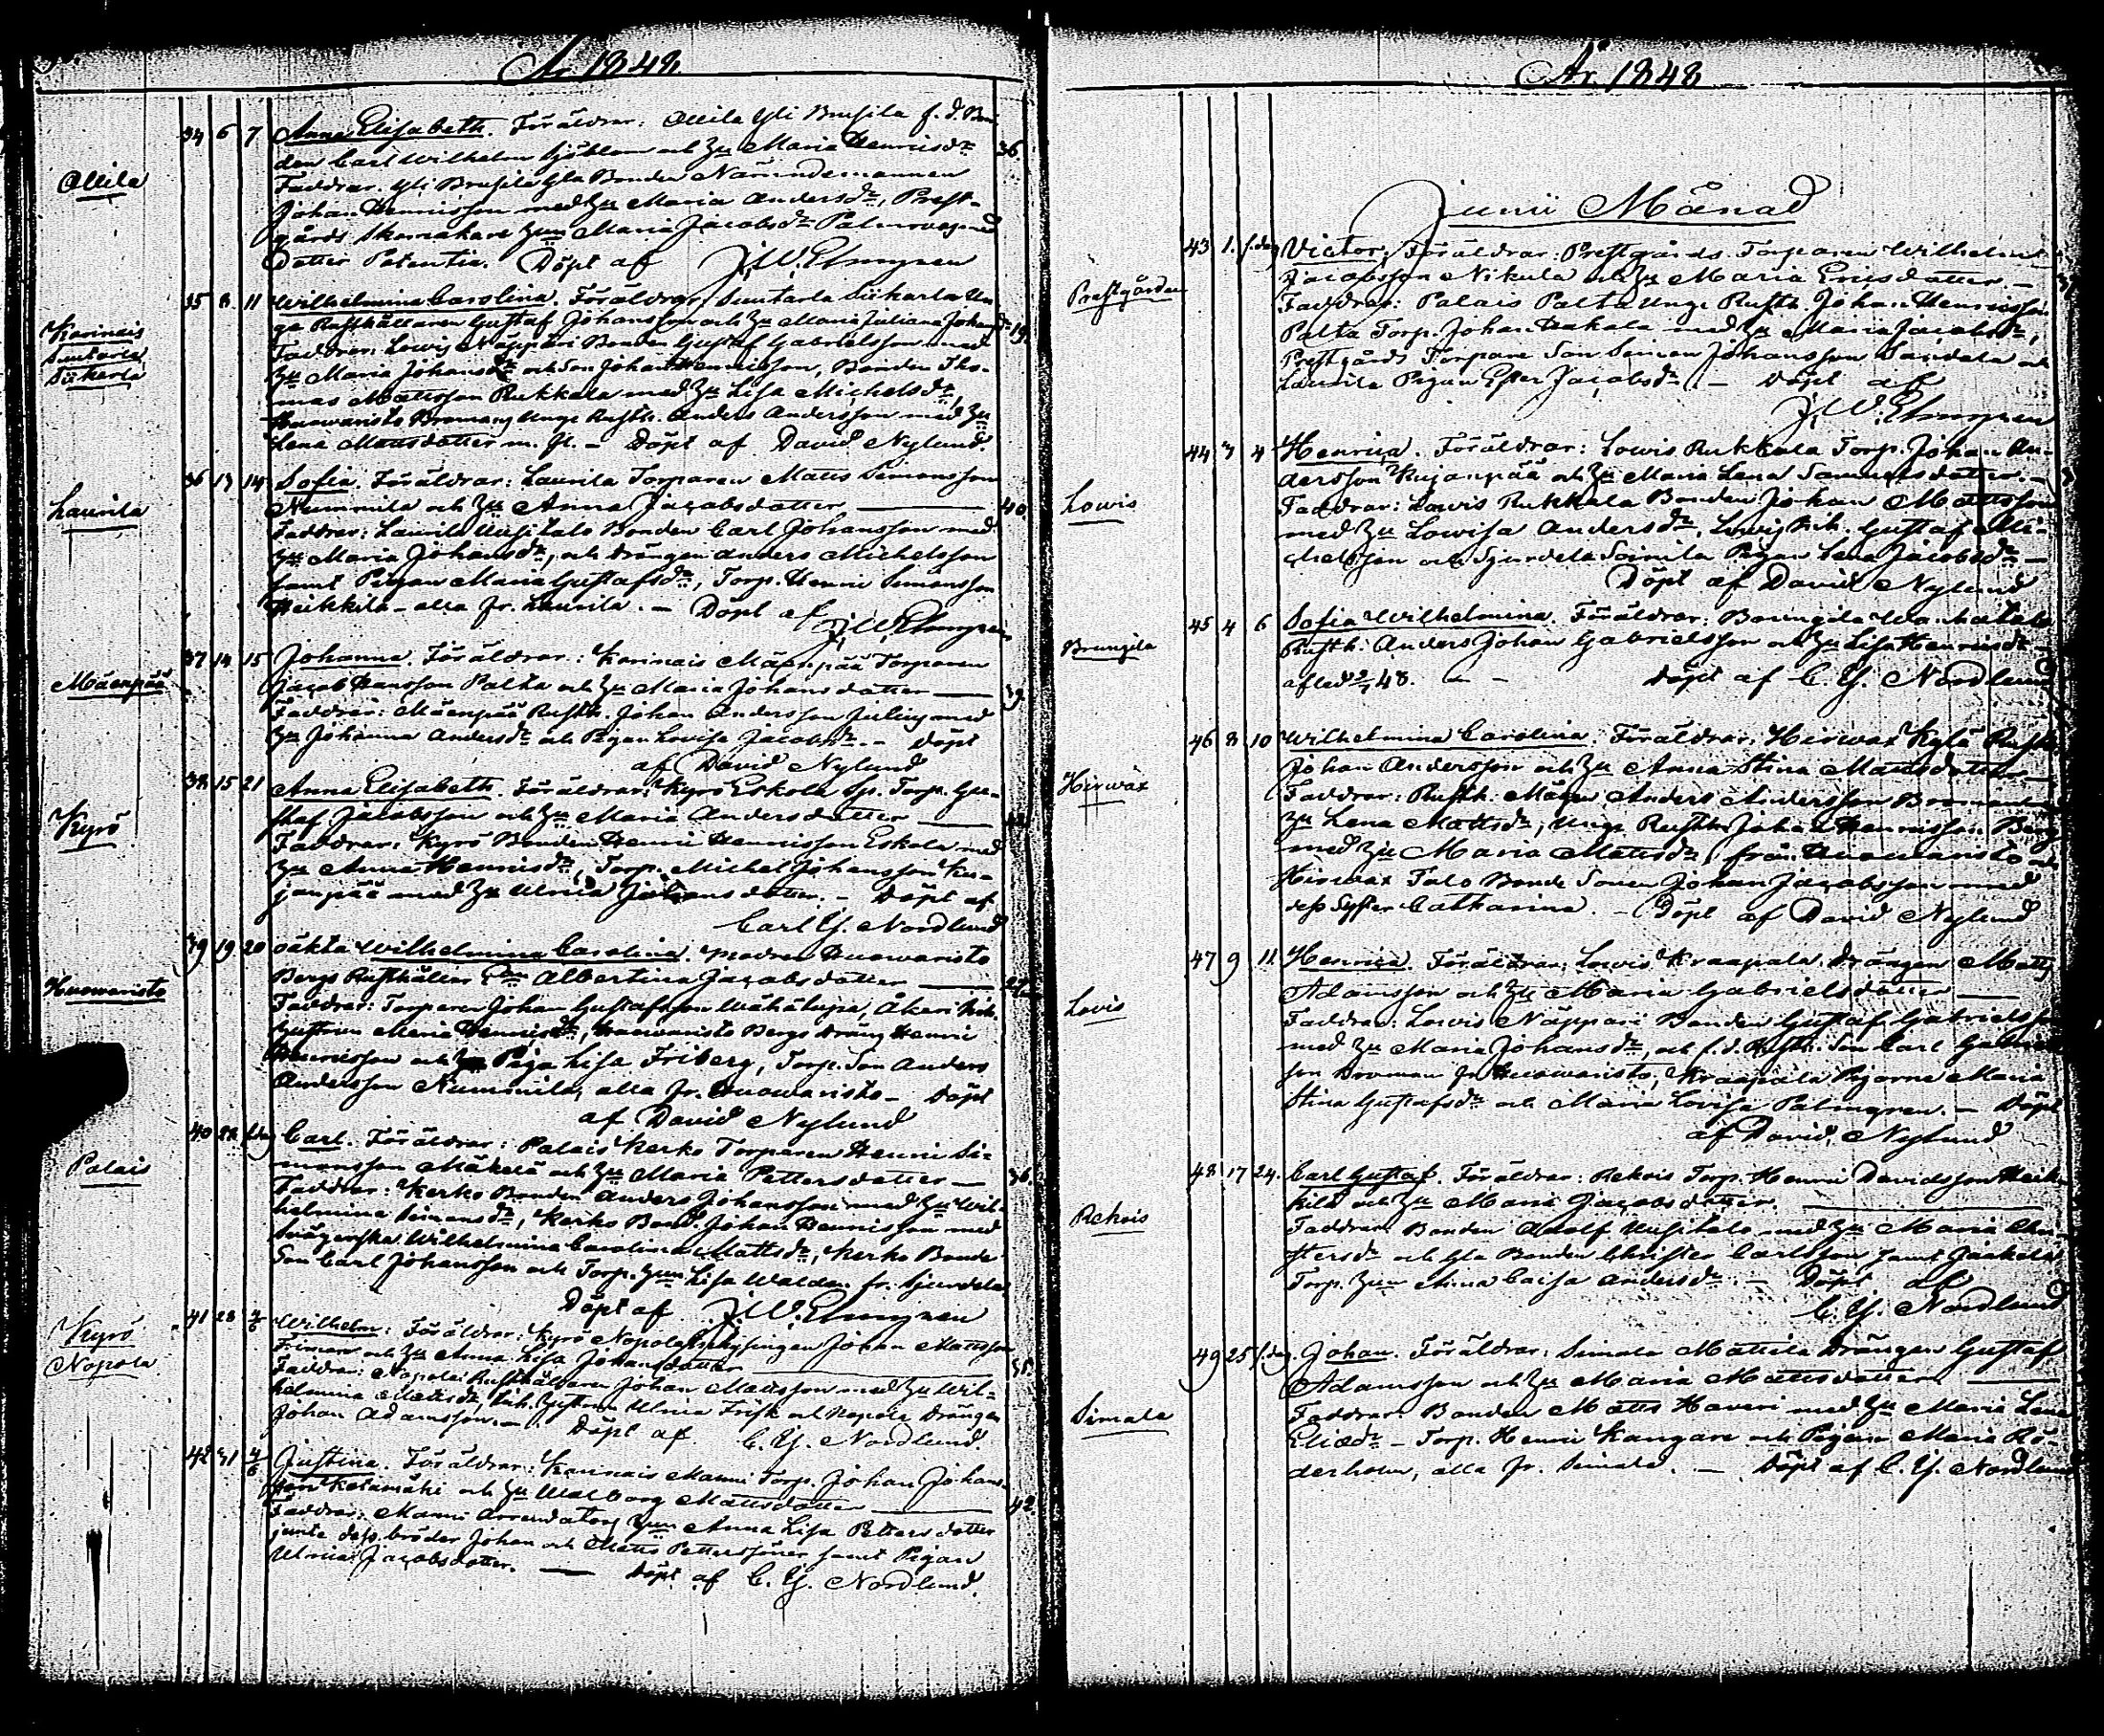 År 1848.
Ollila
34 6 7 Anna Elisabeth. Föräldrar: Ollila Yli Brusila f. d. Bon-
den Carl Wilhelm Sjöblom och Hu Maria Henricsdr 36.
Faddrar: Yli Brusila Gla Bonden Nämndemannen
Johan Henricsson med Hu Maria Andersdr, Prest-
gårds Skomakare Hun Maria Jacobsdr Palmroos med
Dotter Potentia. Döpt af J. W. Elmgren
Karinais
Suutarla
Siikarla
35 8 11 Wilhelmina Carolina. Föräldrar: Suutarla Siikarla Un-
ge Rusthållaren Gustaf Johansson och Hu Maria Juliana Johansdr 19.
Faddrar: Lowis Näppäri Bonden Gustaf Gabrielsson med
Hu Maria Johansdr och Son Johan Henricsson, Bonden Tho-
mas Mattsson Rukkala med Hu Lisa Michelsdr,
Huowaristo Bromans Unge Rusth. Anders Andersson med Hu
Lena Mattsdotter m. fl. – Döpt af David Nylund.
Laurila
36 13 14 Sofia. Föräldrar: Laurila Torparen Matts Simonsson
Nummila och Hu Anna Jacobsdotter 40.
Faddrar: Laurila Uusitalo Bonden Carl Johansson med
Hu Maria Johansdr, och Drängen Anders Michelsson
samt Pigan Maria Gustafsdr, Torp. Henric Simonsson
Heikkilä – alla fr. Laurila. – Döpt af
J. W. Elmgren
Mäenpää
37 14 15 Johanna. Föräldrar: Karinais Mäenpää Torparen
Jacob Hansson Palta och Hu Maria Johansdotter 39.
Faddrar: Mäenpää Rusth. Johan Andersson Julius med
Hu Johanna Andersdr och Pigan Lovisa Jacobsdr. – Döpt
af David Nylund
Kyrö
38 15 21 Anna Elisabeth. Föräldrar: Kyrö Eskola Sp. Torp. Gu-
staf Jacobsson och Hu Maria Andersdotter
Faddrar: Kyrö Bonden Henric Henricsson Eskola med
Hu Anna Henricsdr, Torp. Michel Johansson Ku-
janpää med Hu Ulrica Johansdotter. – Döpt af
Carl G. Nordlund
Huowaristo
39 19 20 oäkta Wilhelmina Carolina. Modren Huowaristo
Bergs Rusthållare Dr Albertina Jacobsdotter 27.
Faddrar: Torparen Johan Gustafsson Wähätupa, Åkeri Inh.
Hustrun Maria Henricsdr, Huowaristo Bergs Dräng Henric
Henricsson och Piga Lisa Friberg, Torp. Son Anders
Andersson Nummila, alla fr. Huowaristo – Döpt
af David Nylund
Palais
40 22 s. dag Carl. Föräldrar: Palais Kerko Torparen Henric Si-
monsson Mäkelä och Hu Maria Pettersdotter – 36.
Faddrar: Kerko Bonden Anders Johansson med Hu Wil-
helmina Simonsdr, Kerko Bond. Johan Henricsson med
Svägerska Wilhelmina Carolina Mattsdr, Kerko Bonde
Son Carl Johansson och Torp. Hun Lisa Waldén fr. Sjundela
Döpt af J. W. Elmgren
Kyrö
Nopola
41 28 4/6 Wilhelm. Föräldrar: Kyrö Nopola Inhysingen Johan Mattsson
Friman och Hu Anna Lisa Johansdotter 35.
Faddrar: Nopola Rusthållaren Johan Mattsson med Hu Wil-
helmina Mattsdr, Inh. Hustrun Ulrica Frisk och Nopola Drängen
Johan Adamsson. – Döpt af C. G. Nordlund.
42 31 4/6 Justina. Föräldrar: Karinais Manni Torp. Johan Johans-
son Katamäki och Hu Walborg Mattsdotter 42
Faddrar: Manni Arrendators Hun Anna Lisa Pettersdotter
jemte dess bröder Johan och Matts Petterssöner samt Pigan
Ulrica Jacobsdotter. – Döpt af C. G. Nordlund.
År 1848
Junii Månad
Prestgården
43 1. s. dag Victor. Föräldrar: Prestgårds Torparen Wilhelm
Jacobsson Nikula och Hu Maria Ericsdotter. –
Faddrar: Palais Palta Unge Rusth. Johan Henricsson
Palta Torp. Johan Hakala med Hu Maria Jacobsdr,
Prestgårds Torpare Son Simon Johansson Sandela och
Laurila Pigan Ester Jacobsdr. – Döpt af
J. W. Elmgren
Lowis
44 3 4 Henrica. Föräldrar: Lowis Rukkala Torp. Johan An-
dersson Kujanpää och Hu Maria Lena Samuelsdotter. –
Faddrar: Lowis Rukkala Bonden Johan Mattsson
med Hu Lowisa Andersdr, Lowis Inh. Gustaf Mi-
chelsson och Sjundela Soinila Pigan Lena Jacobsdr –
Döpt af David Nylund
Brungila
45 4 6 Sofia Wilhelmina. Föräldrar: Brungila Wanhatalo
Rusth. Anders Johan Gabrielsson och Hu Lisa Henricsdr
afled 5/7 48. – – Döpt af C. G. Nordlund
Hirwax
46 8 10 Wilhelmina Carolina. Föräldrar: Hirwax Kylä Rusth.
Johan Andersson och Hu Anna Stina Mattsdotter
Faddrar: Rusth. Mågen Anders Andersson Broman
Hu Lena Mattsdr, Unge Rusth. Johan Henricsson Berg
med Hu Maria Mattsdr, från Huowaristo
Hirwax Talo Bonde Sonen Johan Jacobsson med
dess Syster Catharina. – Döpt af David Nylund
Lovis
47 9 11 Henrica. Föräldrar: Lowis Kraapala Drängen Matts
Adamsson och Hu Maria Gabrielsdotter
Faddrar: Lowis Näppäri Bonden Gustaf Gabrielsson
med Hu Maria Johansdr, och f. d. Rusth. Son Carl Gabriel-
son Broman fr. Huowaristo, Kraapala Pigorna Maria
Stina Gustafsdr och Maria Lovisa Palmgren. – Döpt
af David Nylund
Rekois
48 17 24. Carl Gustaf. Föräldrar: Rekois Torp. Henric Davidsson Heik-
kilä och Hu Maria Jacobsdotter.
Faddrar: Bonden Adolf Uusitalo med Hu Maria Chri-
stersdr och Gla Bonden Christer Carlsson samt Jaakola
Torp. Hun Anna Caisa Andersdr. – Döpt af
C. G. Nordlund
Simala
49 25 s. dag. Johan. Föräldrar: Simala Mattila Drängen Gustaf
Adamsson och Hu Maria Mattsdotter
Faddrar: Bonden Matts Haveri med Hu Maria Lena
Eliædr – Torp. Henric Kangare och Pigan Maria Rö-
derholm, alla fr. Simala. – Döpt af C. G. Nordlund